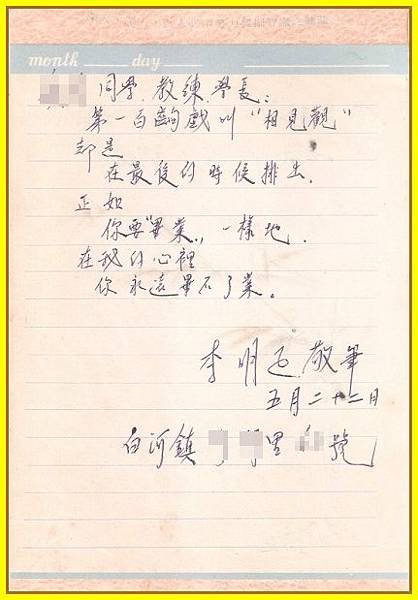 month day
同學. 教練. 學長:
第一百齣戲叫"相見觀"
却是
在最後的時候排出.
正如
你要"畢業"一樣地.
在我的心裡
你永遠畢不了業。
李明 敬筆
五月二十二日
白河鎮 里 號